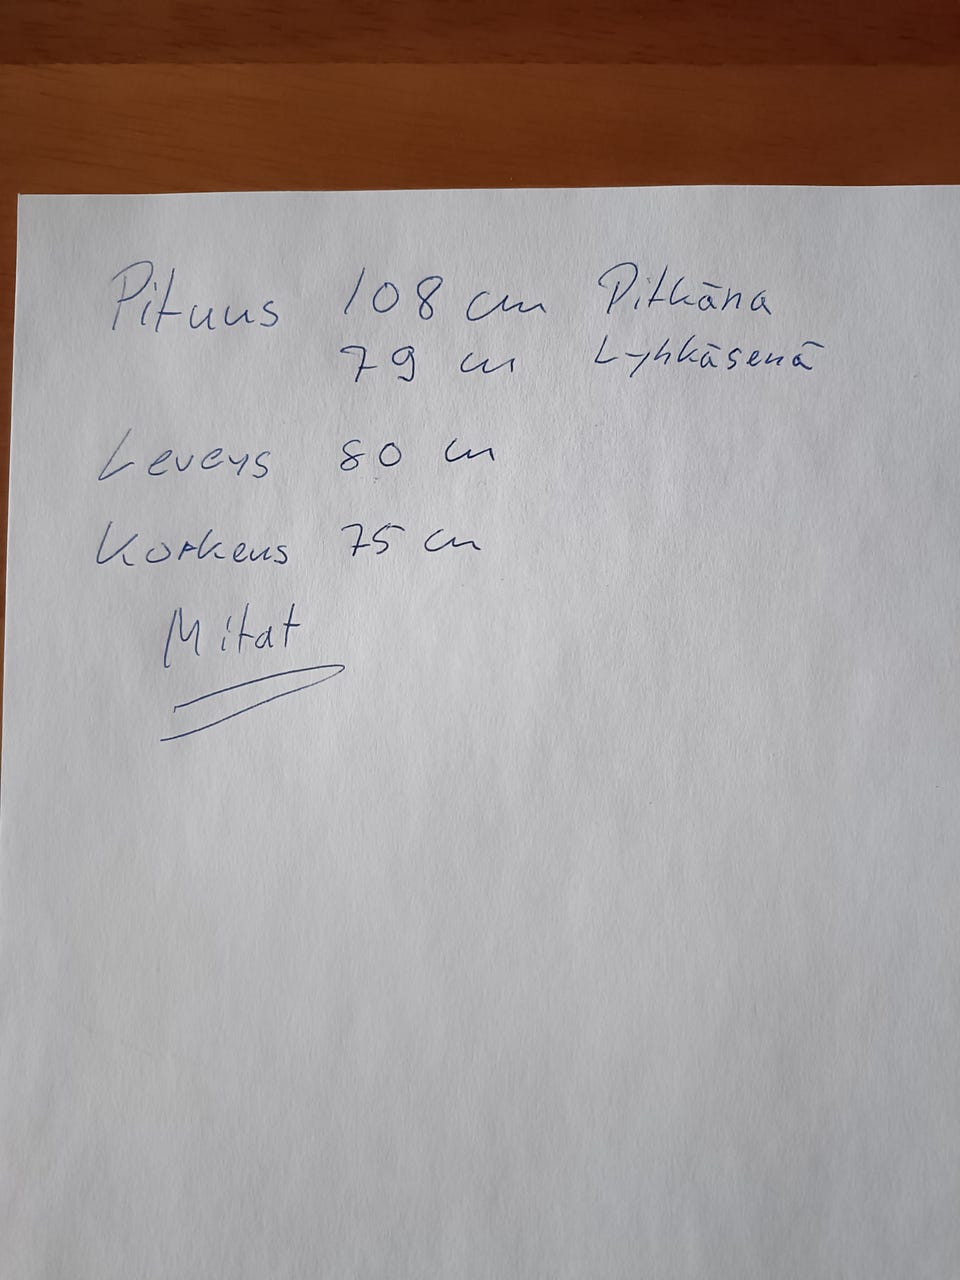 Pituus 108 cm Pitkäna
79 cm Lyhkäsenä
Leveys 80 cm
Korkeus 75 cm
Mitat